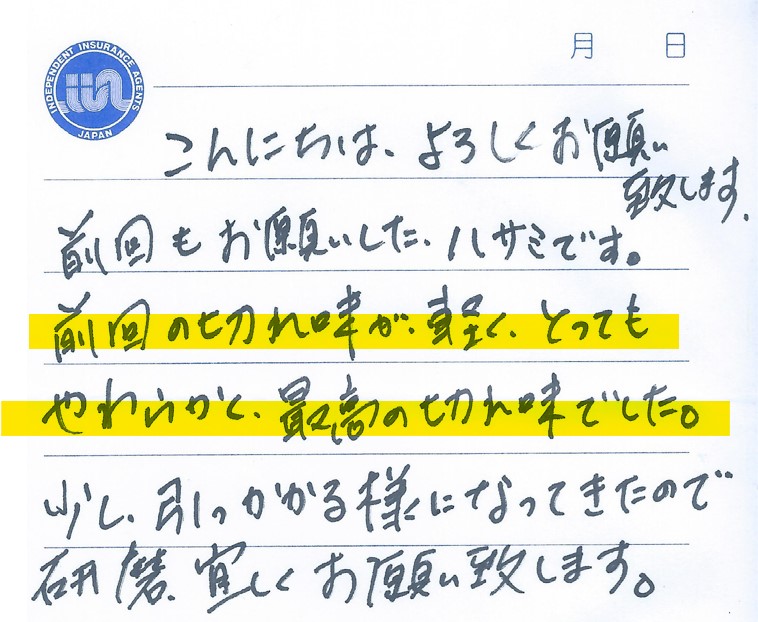 INDEPENDENT INSURANCE AGENTS
JAPAN
月 日
こんにちは、よろしくお願い
致します。
前回もお願いした、ハサミです。
前回の切れ味が、軽く、とっても
やわらかく、最高の切れ味でした。
少し、引っかかる様になってきたので
研磨、宜しくお願い致します。